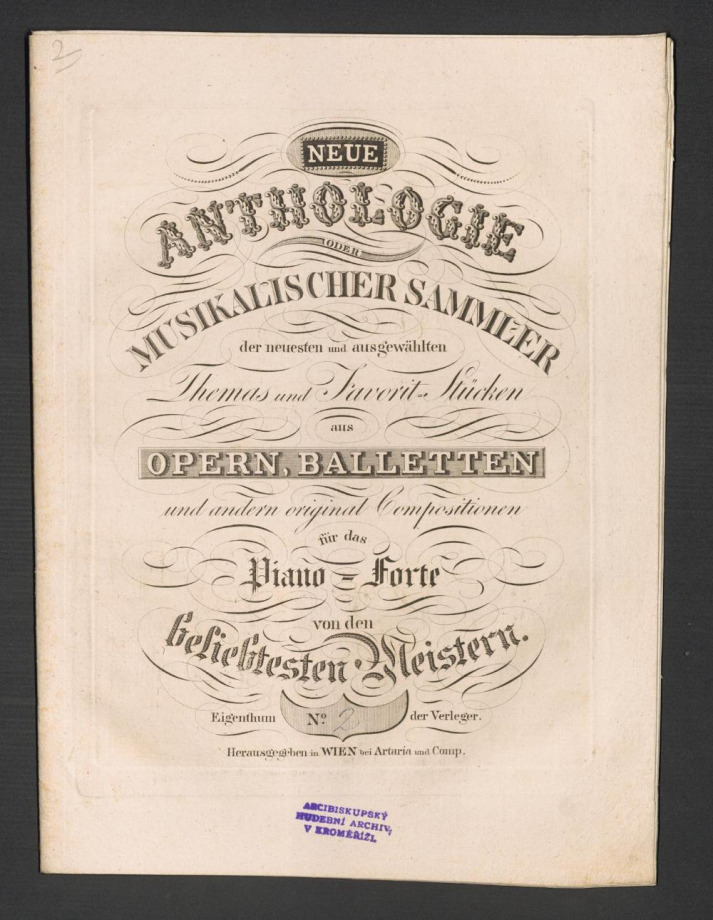 2
NEUE
ANTHOLOGIE
ODER
MUSIKALISCHER SAMMLER
der neuesten und ausgewählten
Themas und Favorit-Stücken
aus
OPERN, BALLETTEN
und andern original Compositionen
für das
Piano-Forte
von den
beliebtesten Meistern.
Eigenthum No. 2 der Verleger.
Herausgegeben in WIEN bei Artaria und Comp.
ARCIBISKUPSKÝ
HUDEBNÍ ARCHIV,
V KROMĚŘÍŽI.